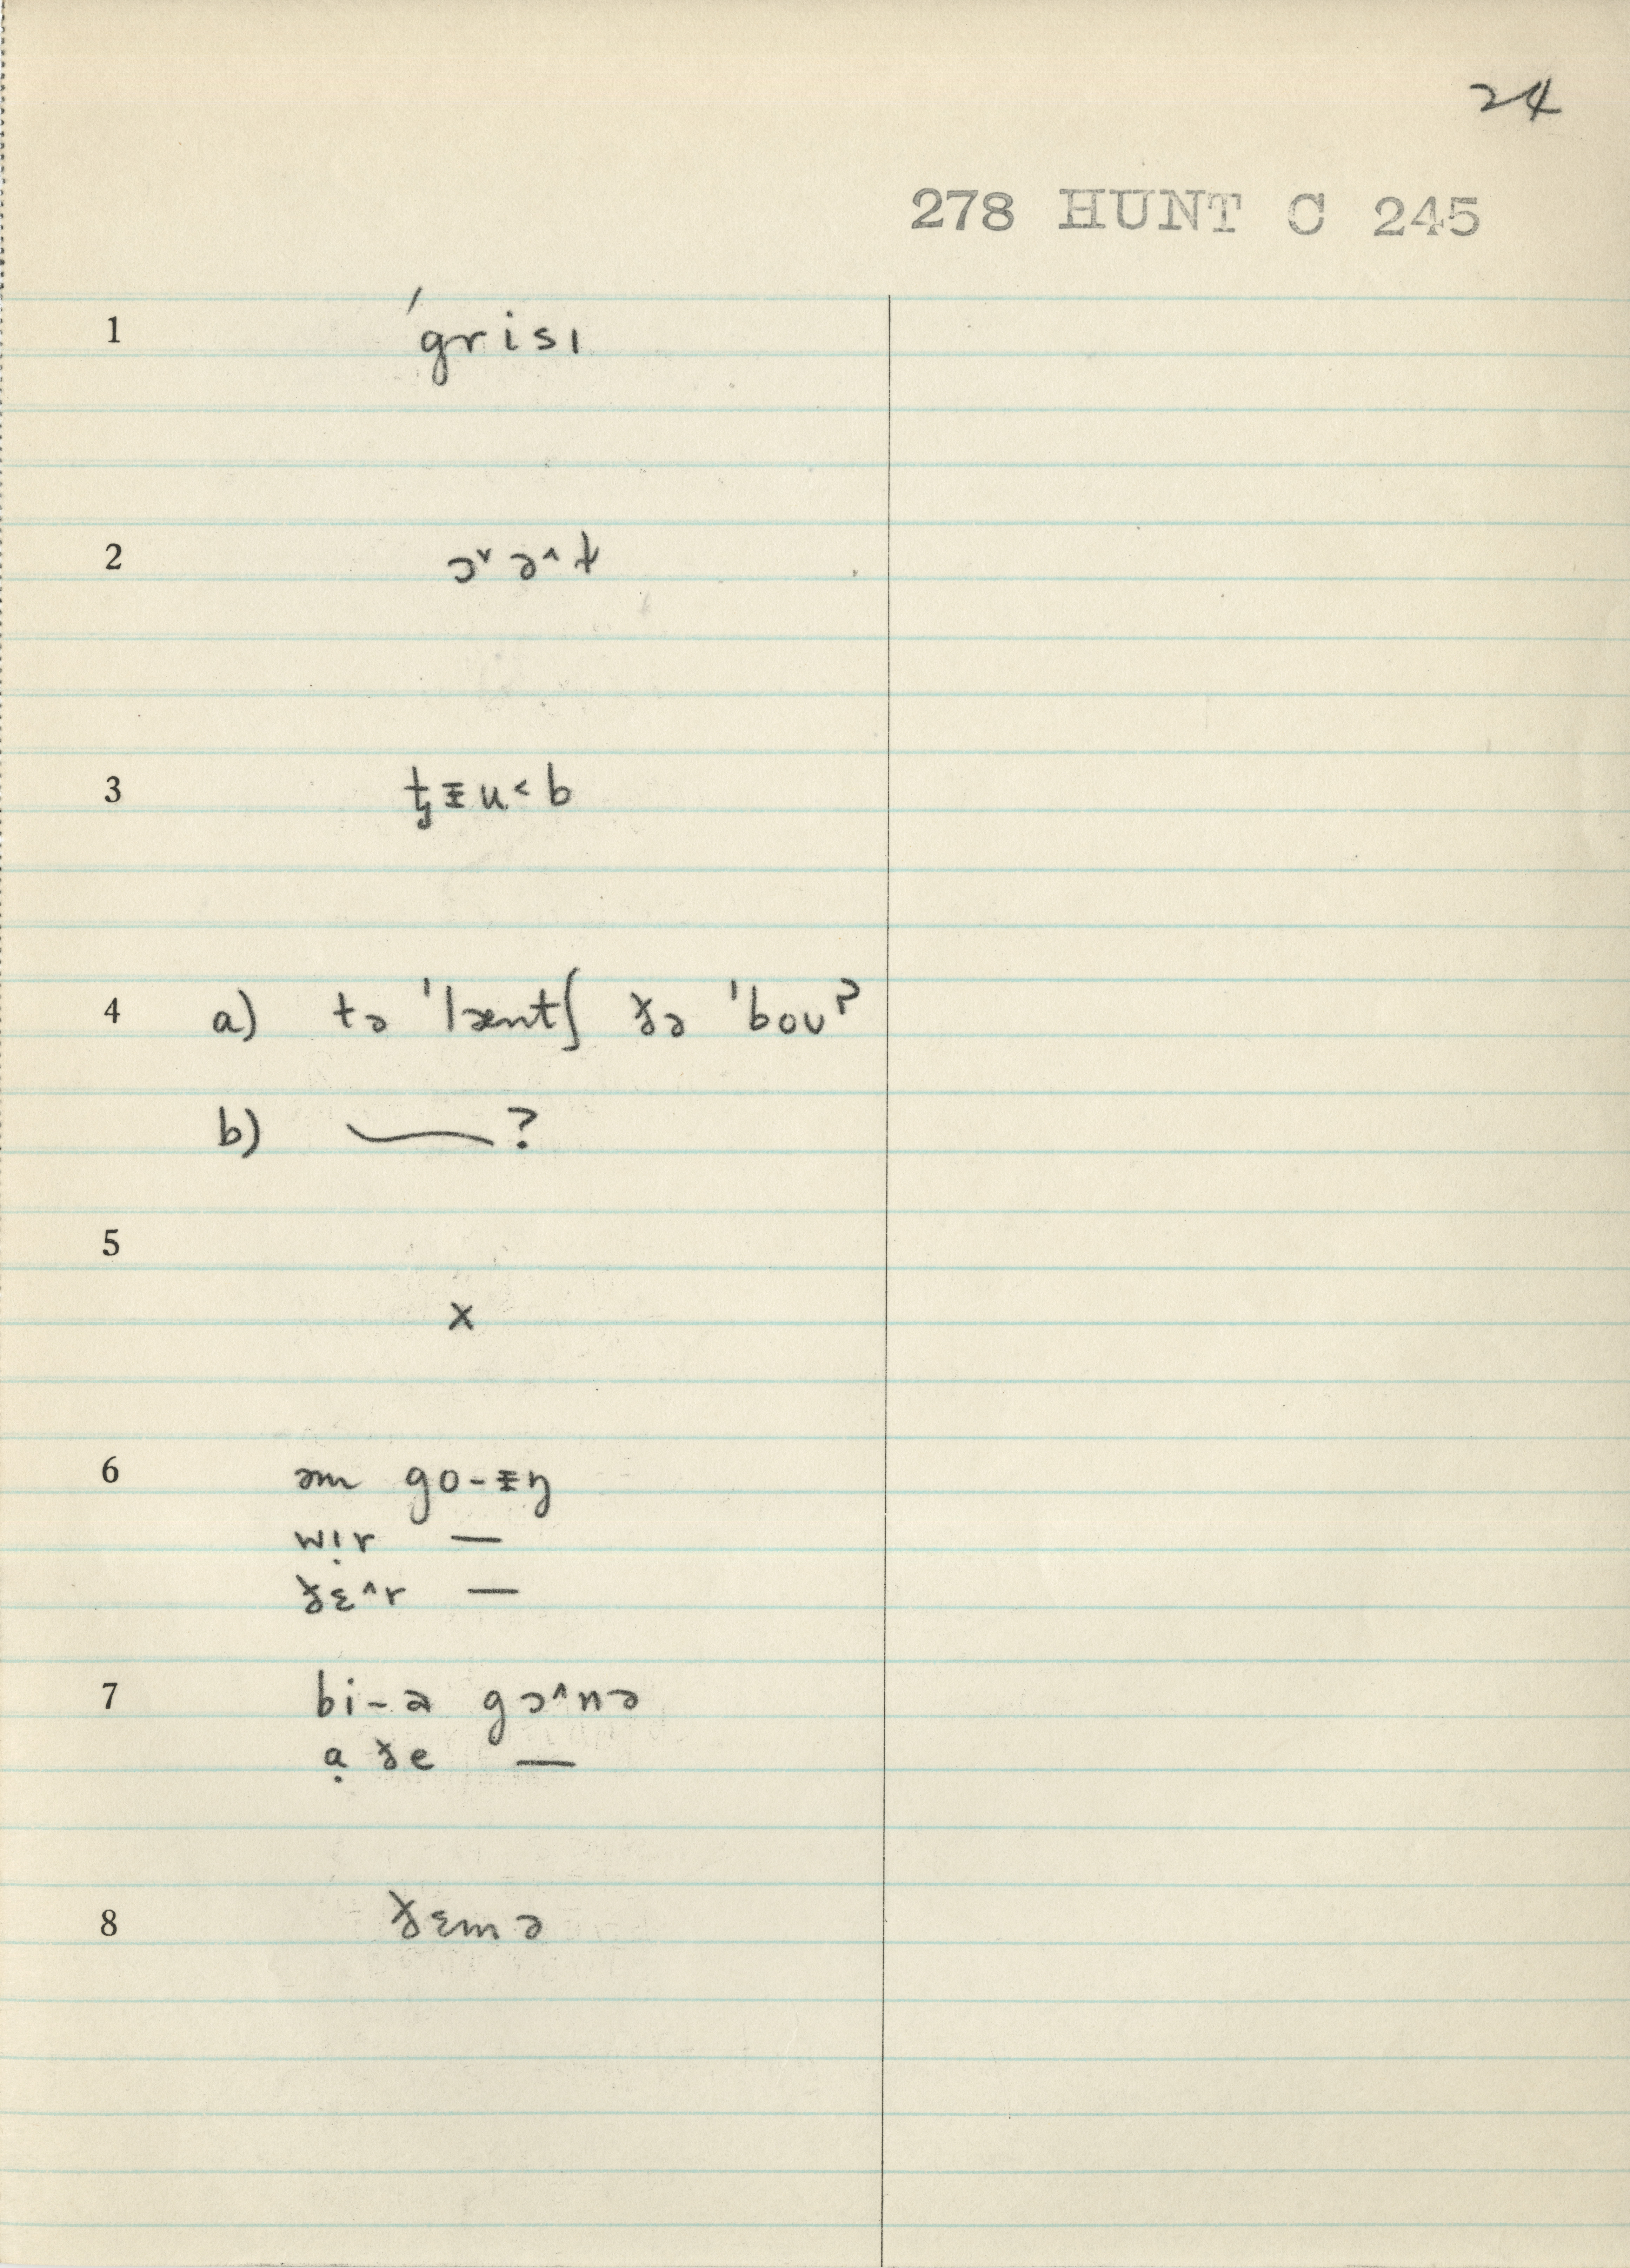 24
278 HUNT C 245
1 ˈgrisɪ
2 ɔ˅ ə˄ t
3 tʒ ᵻ u˂ b
4 a) tə ˈlæntʃ ðə ˈboʊ?
b) —?
5
x
6 əm go-ᵻŋ
wɪ̣r —
ðɛ˄r —
7 bi-ə gɔ˄nə
ạ ðe —
8 ðɛmə